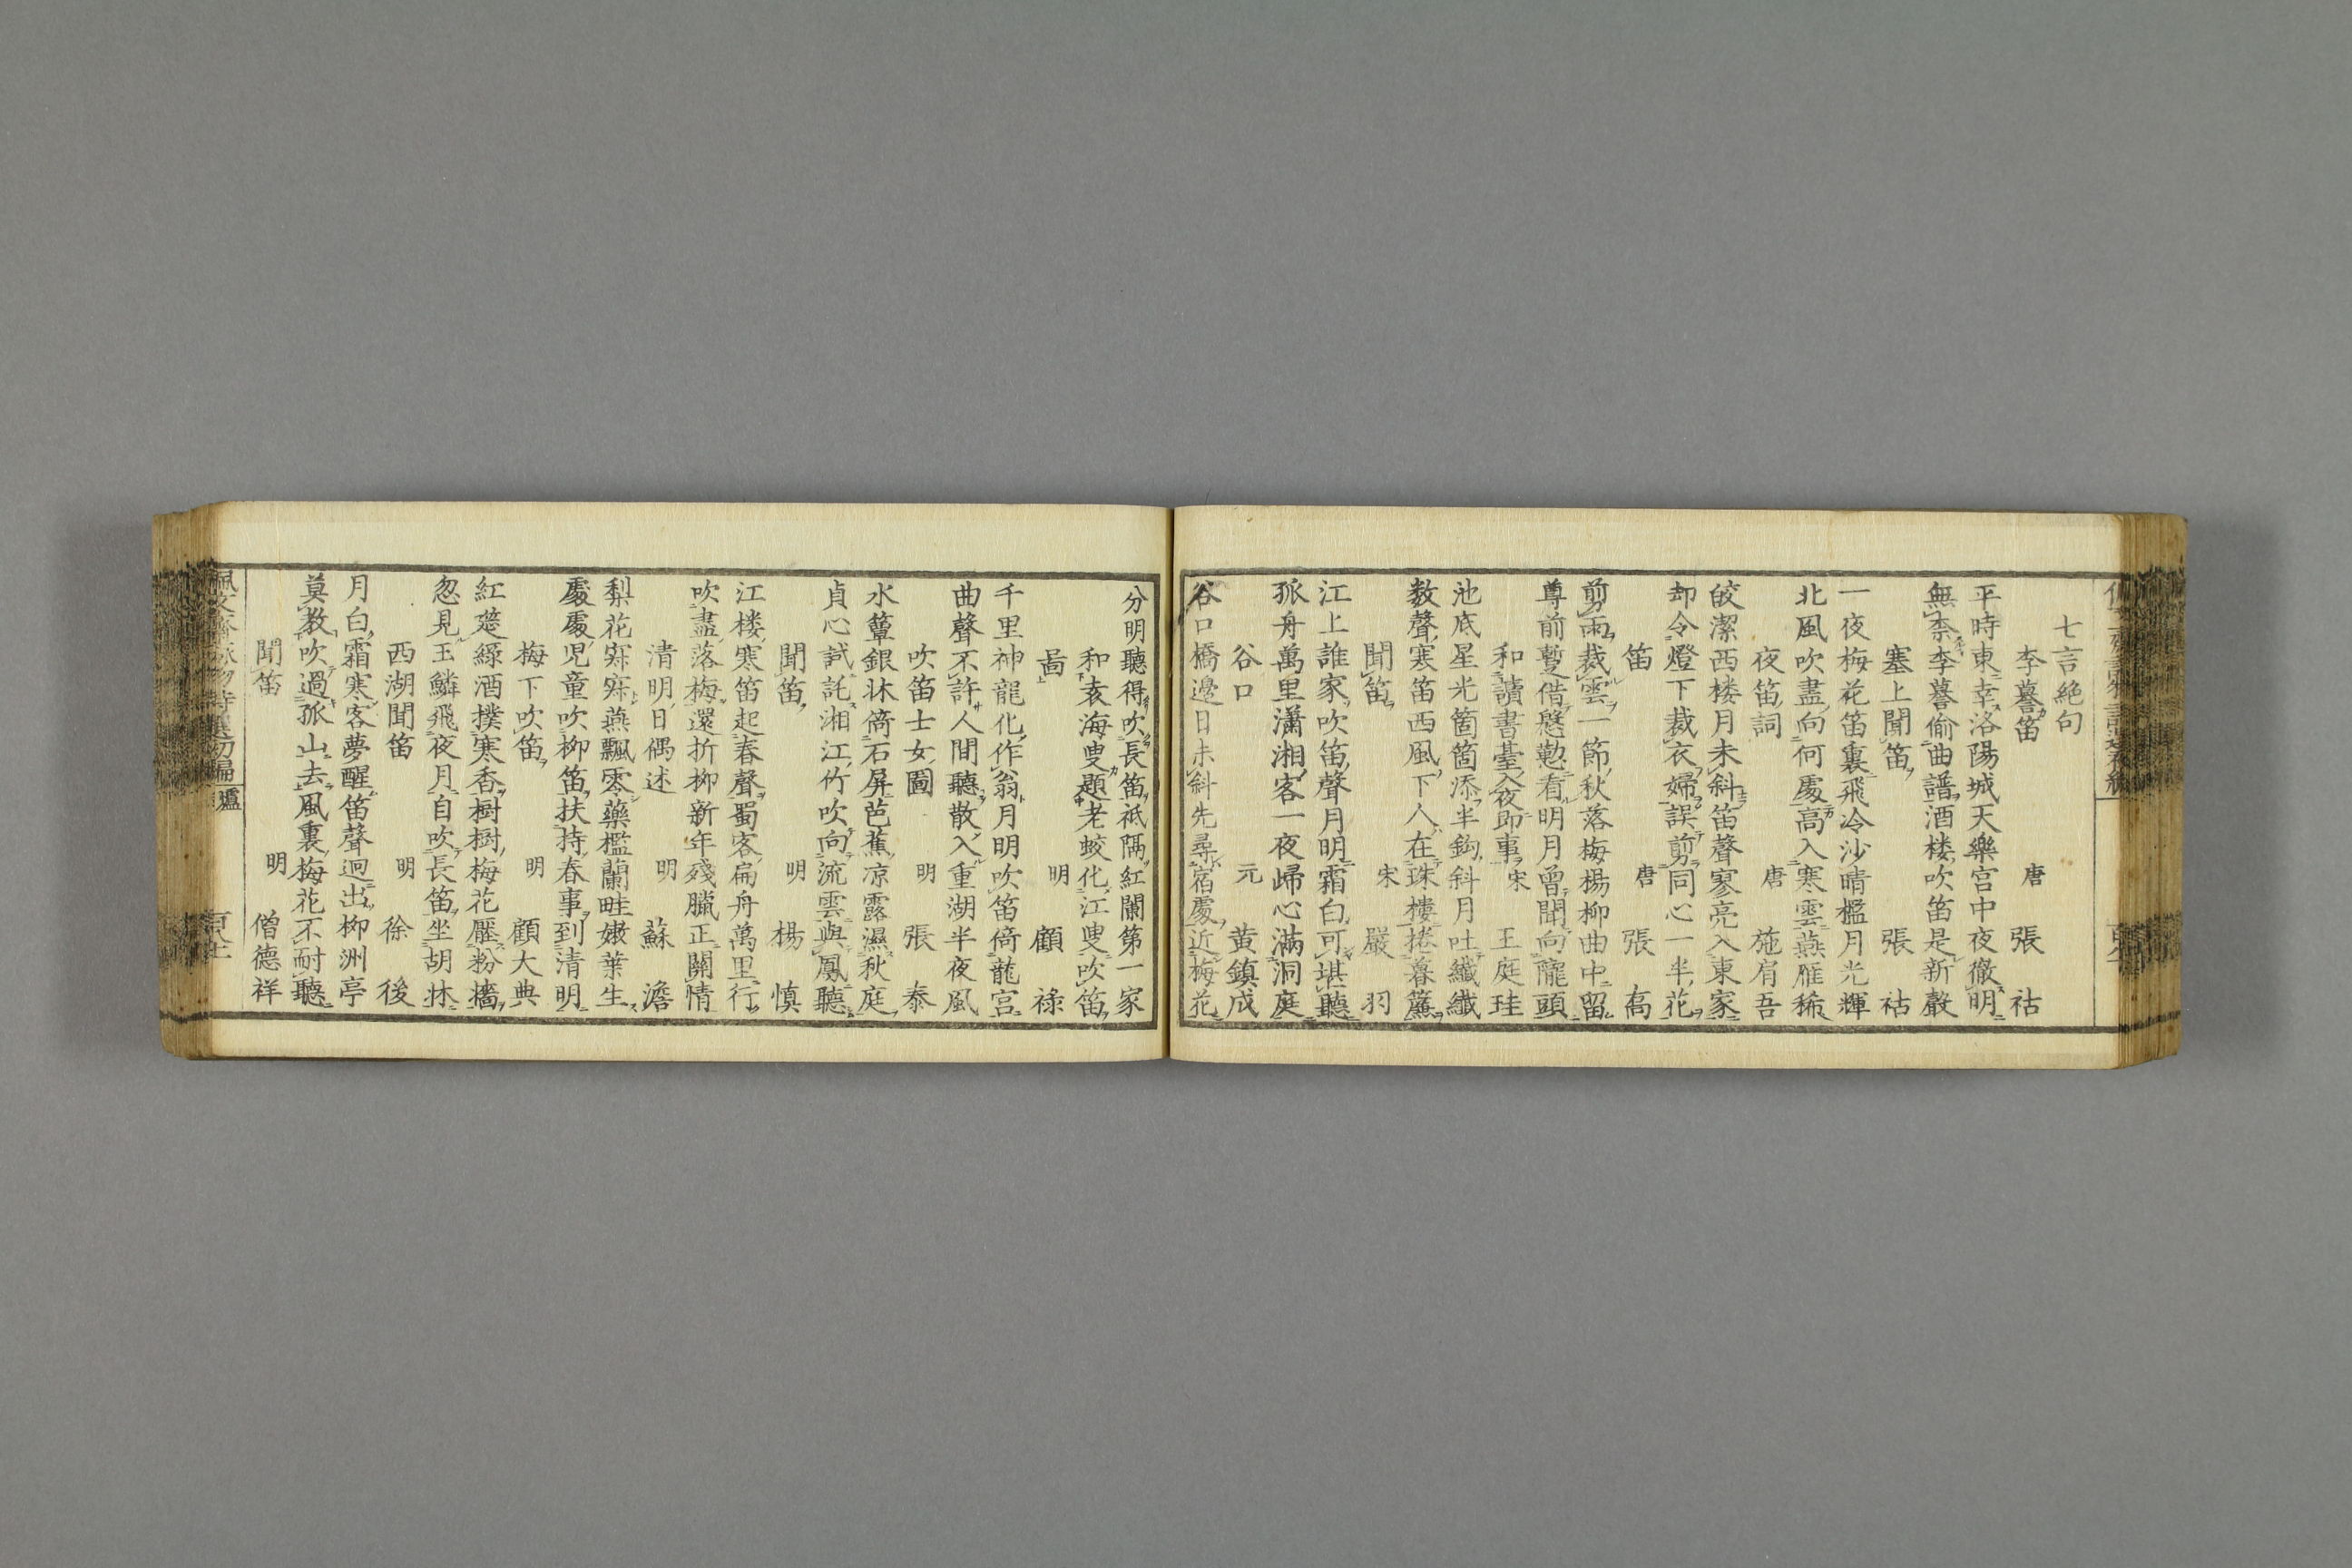 七言絶句
李謩笛 唐 張祜
平時東幸洛陽城天樂宮中夜徹明
無柰李謩偷曲譜酒楼吹笛是新聲
塞上聞笛 張祜
一夜梅花笛裏飛冷沙晴檻月光輝
北風吹盡向何處高入寒雲燕雁稀
夜笛詞 唐 施肩吾
皎潔西楼月未斜笛聲寥亮入東家
却令燈下裁衣婦誤剪同心一半花
笛 唐 張祜
剪雨裁雲一節秋落梅楊柳曲中留
尊前蹔借慇懃看明月曽聞向隴頭
和讀書臺入夜即事 宋 王庭珪
池底星光箇箇添半鈎斜月吐纖纖
数聲寒笛西風下人在珠樓捲暮簾
聞笛 宋 嚴羽
江上誰家吹笛聲月明霜白可堪聽
孤舟萬里瀟湘客一夜歸心滿洞庭
谷口 元 黄鎮成
谷口橋邊日未斜先尋宿處近梅花
分明聽得吹長笛祗隔紅闌第一家
和袁海叟題老蛟化江叟吹笛
啚 明 顧祿
千里神龍化作翁月明吹笛倚龍宮
曲聲不許人間聽散入重湖半夜風
吹笛士女圖 明 張泰
水簟銀牀倚石屏芭蕉凉露濕秋庭
貞心試託湘江竹吹向流雲與鳳聽
聞笛 明 楊慎
江楼寒笛起春聲蜀客扁舟萬里行
吹盡落梅還折柳新年殘臘正關情
清明日偶述 明 蘇澹
梨花寂寂燕飄零藥檻蘭畦嫩葉生
處處児童吹柳笛扶持春事到清明
梅下吹笛 明 顧大典
紅莚緑酒撲寒香樹樹梅花壓粉墻
忽見玉鱗飛夜月自吹長笛坐胡牀
西湖聞笛 明 徐後
月白霜寒客夢醒笛聲迥出柳洲亭
莫教吹過孤山去風裏梅花不耐聽
聞笛 明 僧德祥
佩文齋詠物詩選初編